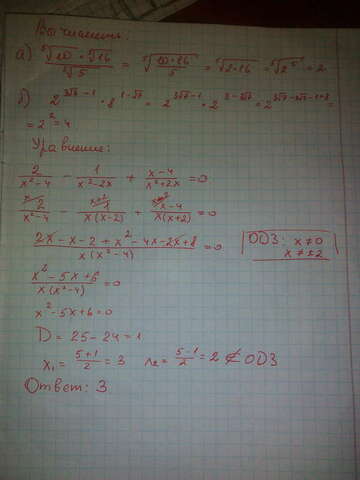 Вычислить:
а) ⁵√10 · ⁵√16 / ⁵√5 = ⁵√(10·16 / 5) = ⁵√(2·16) = ⁵√(2⁵) = 2.
б) 2^(3√7−1) · 8^(1−√7) = 2^(3√7−1) · 2^(3−3√7) = 2^(3√7−3√7−1+3) =
= 2² = 4
Уравнение:
2/(x²−4) − 1/(x²−2x) + (x−4)/(x²+2x) = 0
2/(x²−4) − 1/(x(x−2)) + (x−4)/(x(x+2)) = 0
(2x − x − 2 + x² − 4x − 2x + 8)/(x(x²−4)) = 0 ОДЗ: x ≠ 0
x ≠ ±2
(x² − 5x + 6)/(x(x²−4)) = 0
x² − 5x + 6 = 0
D = 25 − 24 = 1
x₁ = (5+1)/2 = 3 x₂ = (5−1)/2 = 2 ∉ ОДЗ
Ответ: 3